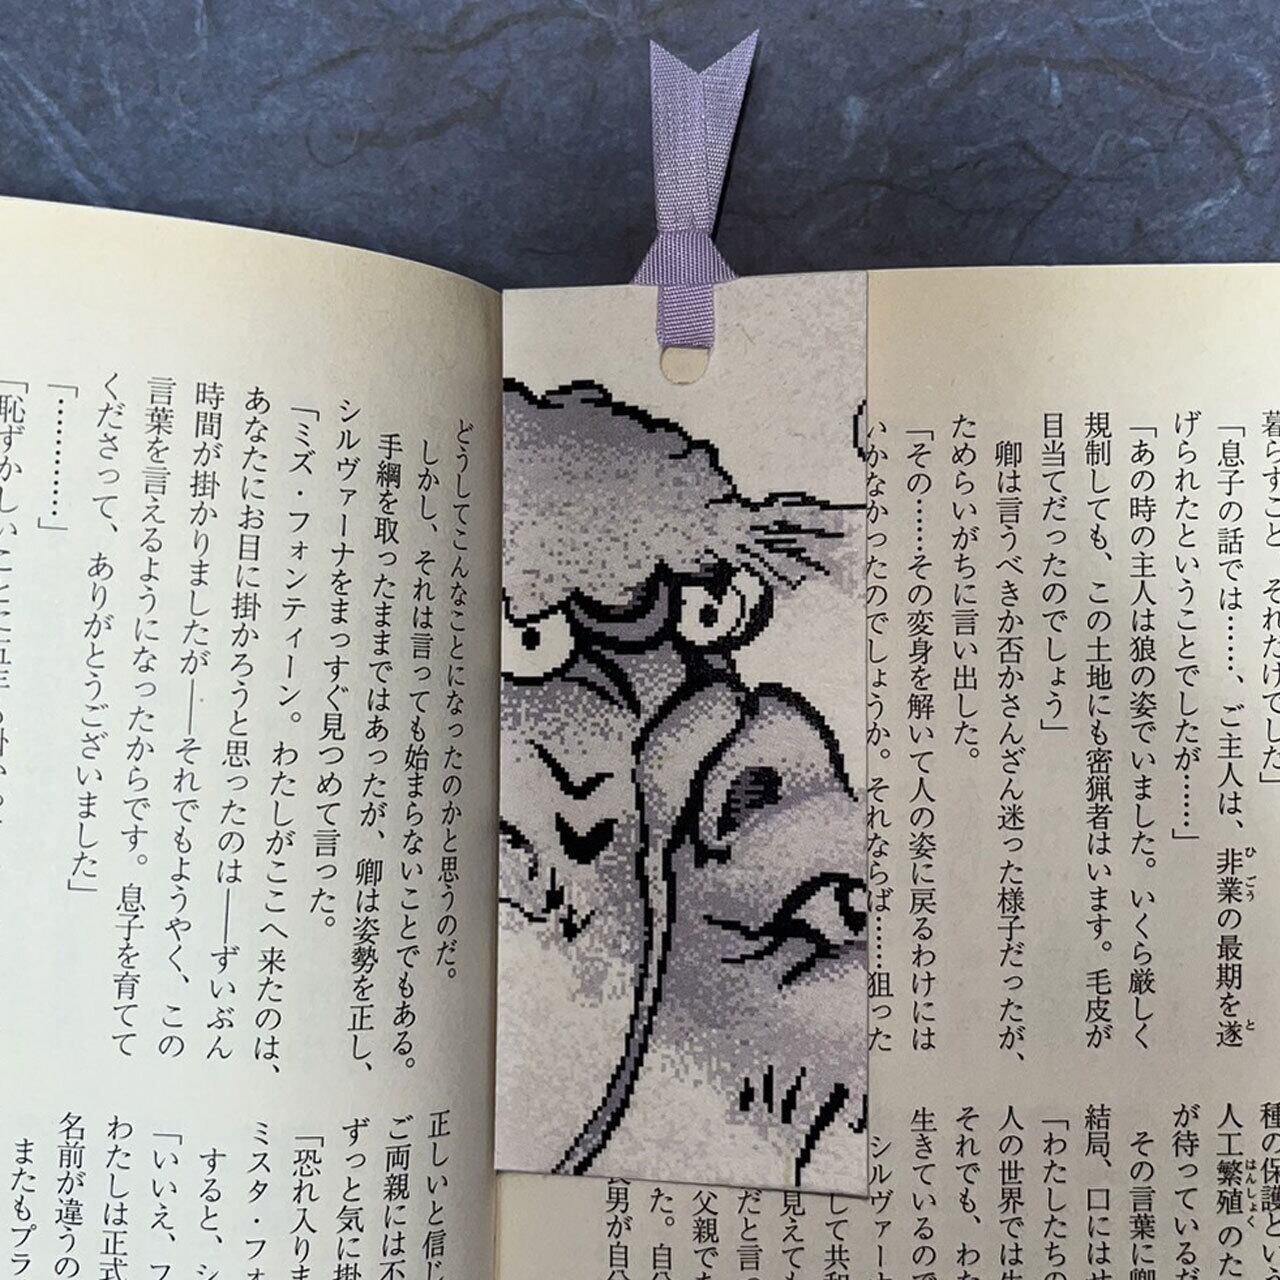 暮らすこと、それだけでした」
「息子の話では……、ご主人は、非業の最期を遂
げられたということでしたが……」
「あの時の主人は狼の姿でいました。いくら厳しく
規制しても、この土地にも密猟者はいます。毛皮が
目当てだったのでしょう」
卿は言うべきか否かさんざん迷った様子だったが、
ためらいがちに言い出した。
「その……その変身を解いて人の姿に戻るわけには
いかなかったのでしょうか。それならば……狙った
どうしてこんなことになったのかと思うのだ。
しかし、それは言っても始まらないことでもある。
手綱を取ったままではあったが、卿は姿勢を正し、
シルヴァーナをまっすぐ見つめて言った。
「ミズ・フォンティーン。わたしがここへ来たのは、
あなたにお目に掛かろうと思ったのは――ずいぶん
時間が掛かりましたが――それでもようやく、この
言葉を言えるようになったからです。息子を育てて
くださって、ありがとうございました」
「…………」
「恥ずかしいことに
種の保護とい
人工繁殖のた
が待っているだ
その言葉に卿
結局、口には
「わたしたちの
人の世界では生
それでも、わた
生きているので
シルヴァーナ
して共和
見えても
だと言っ
父親で
た。自分
長男が自分
正しいと信じ
ご両親には不
ずっと気に掛
「恐れ入りま
ミスタ・フォ
すると、シ
「いいえ、フ
わたしは正式
名前が違うの
またもプラ